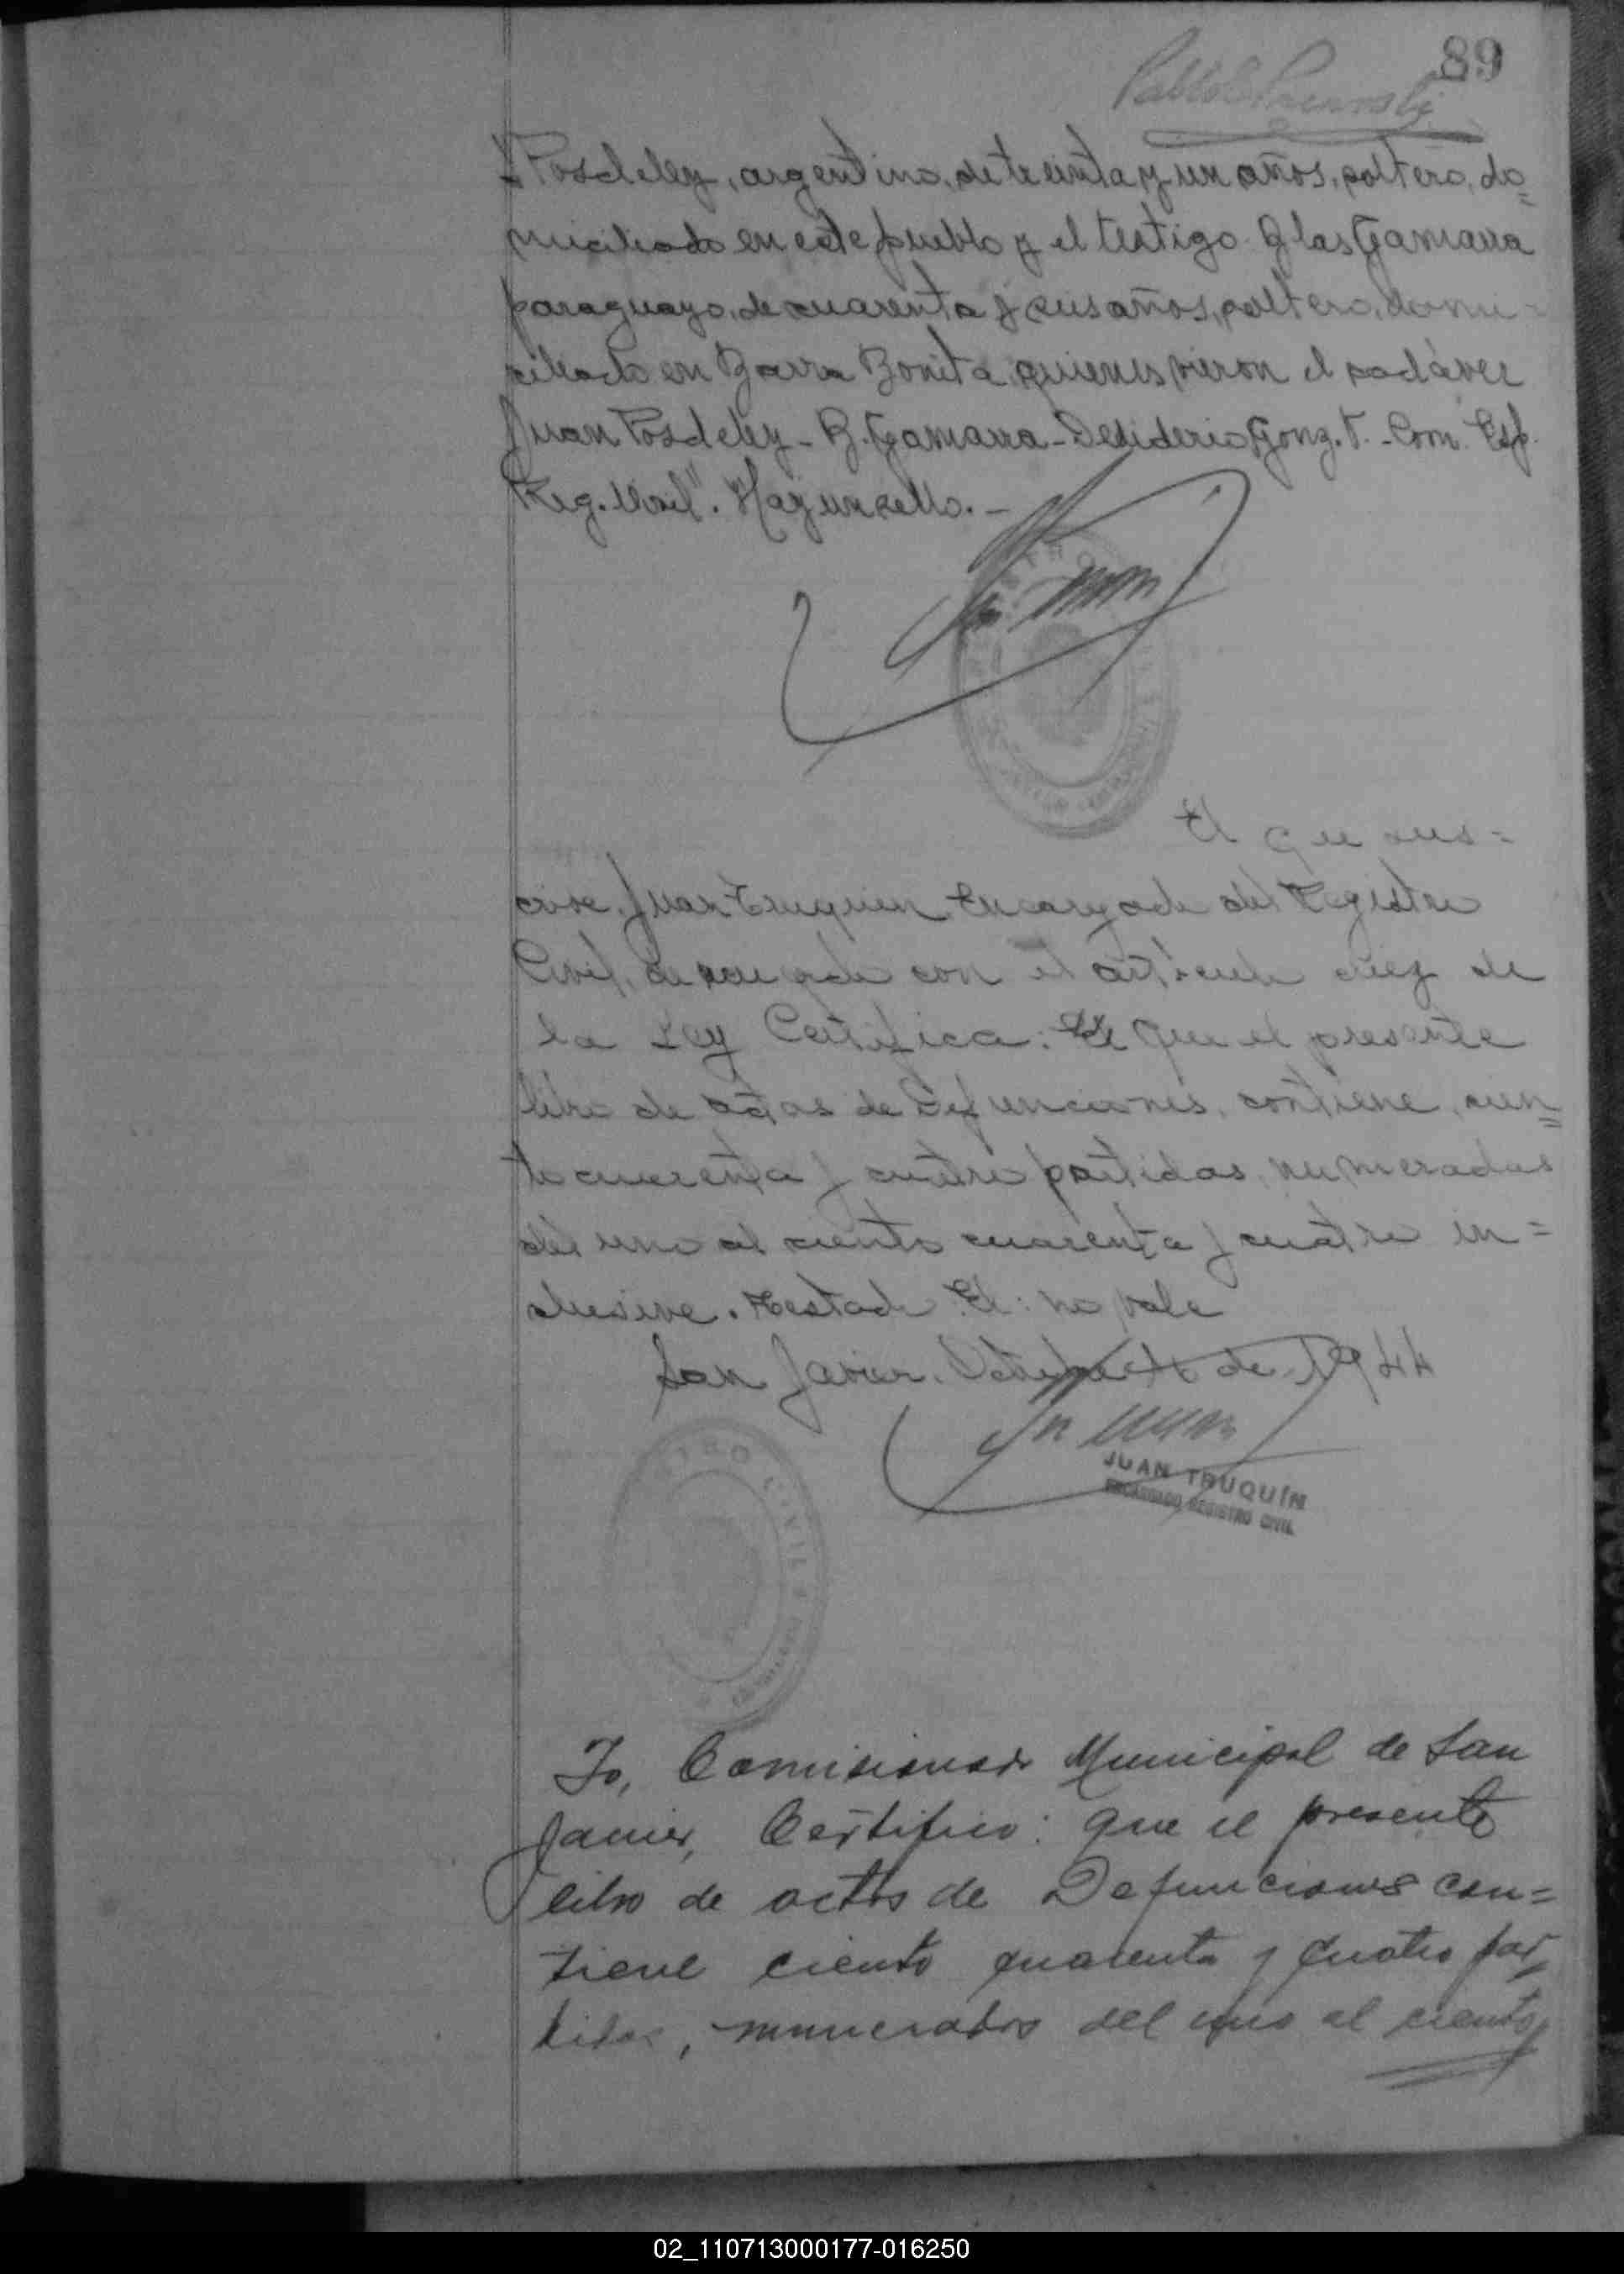 89
Posdeley, argentino, de treinta y un años, soltero, do=
miciliado en este pueblo y el testigo Blas Gamarra
paraguayo, de cuarenta y seis años, soltero, domi=
ciliado en Barra Bonita, quienes vieron el cadáver
Juan Posdeley - B. Gamarra - Desiderio Gonz. T. - Com. Esp.
Reg. Civil". Hay un sello. -
El que sus=
cribe, Juan Truquin Encargado del Registro
Civil, de acuerdo con el artículo diez de
la Ley Certifica: El que el presente
libro de actas de Defunciones, contiene, cien=
to cuarenta y cuatro partidas, numeradas
del uno al ciento cuarenta y cuatro in=
clusive. Testado El: no vale
San Javier, Octubre de 1944
JUAN TRUQUÍN
ENCARGADO REGISTRO CIVIL
REGISTRO CIVIL
Yo, Comisionado Municipal de San
Javier, Certifico: que el presente
libro de actas de Defunciones con=
tiene ciento cuarenta y cuatro par=
tidas, numerados del uno al ciento
02_110713000177-016250